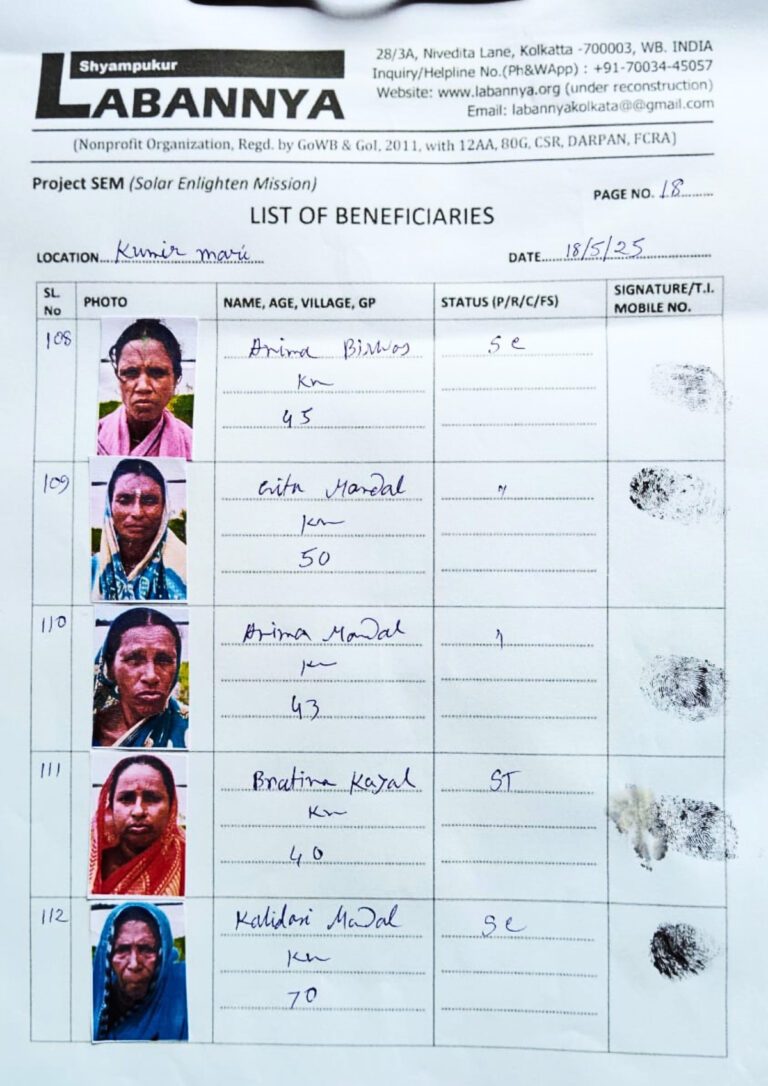 Shyampukur
LABANNYA
28/3A, Nivedita Lane, Kolkatta -700003, WB. INDIA
Inquiry/Helpline No.(Ph&WApp) : +91-70034-45057
Website: www.labannya.org (under reconstruction)
Email: labannyakolkata@@gmail.com
(Nonprofit Organization, Regd. by GoWB & GoI, 2011, with 12AA, 80G, CSR, DARPAN, FCRA)
Project SEM (Solar Enlighten Mission)
PAGE NO. 18
LIST OF BENEFICIARIES
LOCATION Kumir mari
DATE 18/5/25
SL. No PHOTO NAME, AGE, VILLAGE, GP STATUS (P/R/C/FS) SIGNATURE/T.I. MOBILE NO.
108 Anima Biswas SC
Km
45
109 Mondal "
Km
50
110 Anima Mondal "
Km
43
111 Kayal ST
Km
40
112 Kalidasi Mondal SC
Km
70